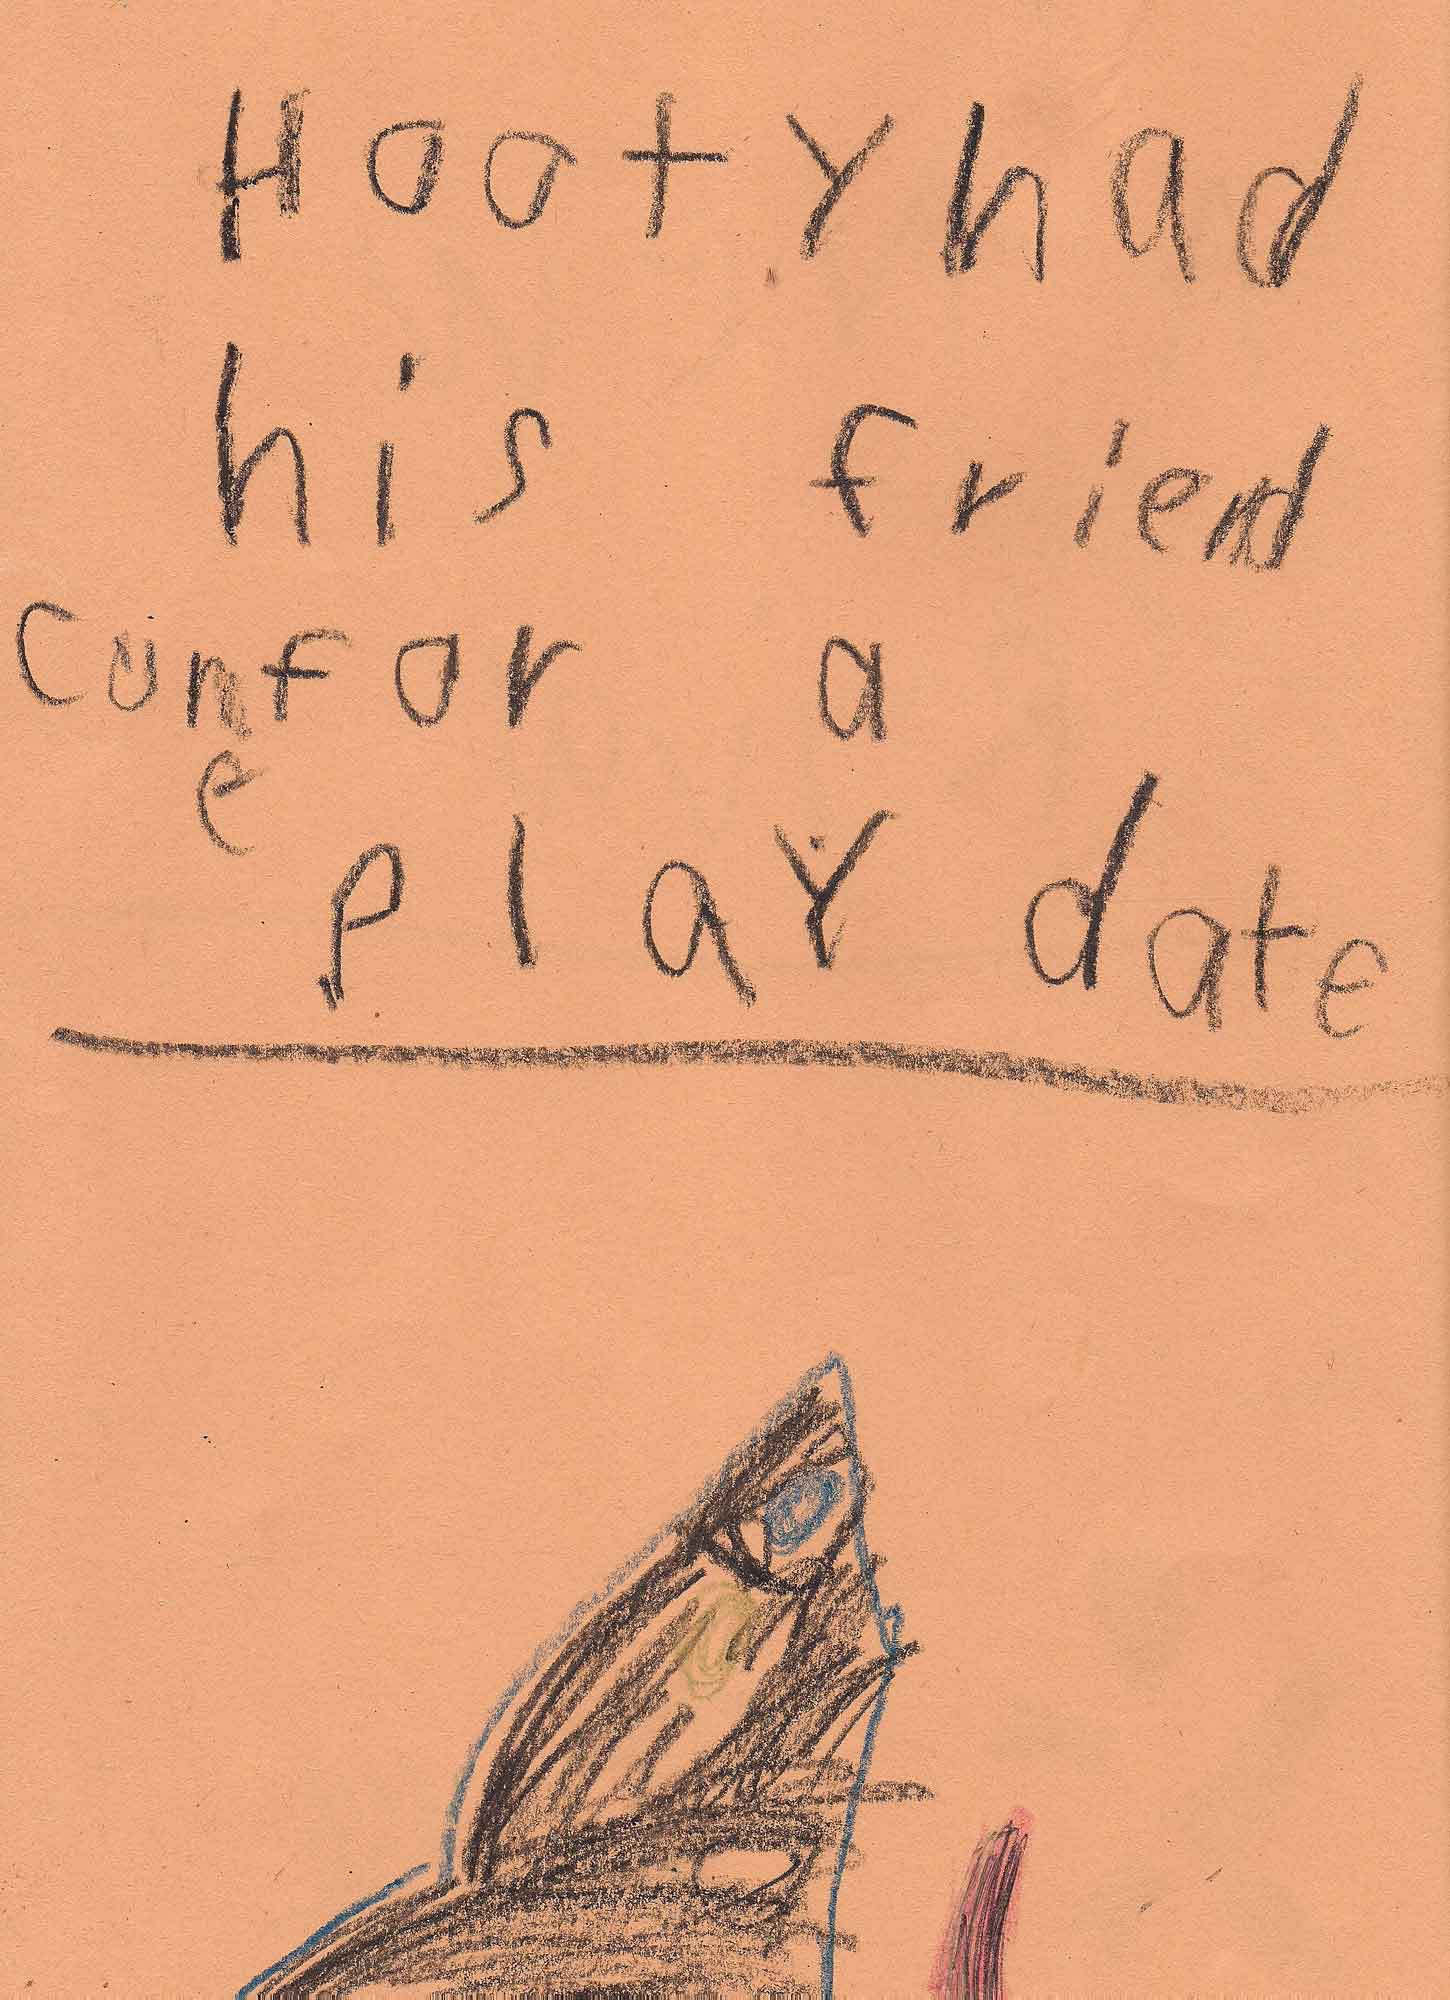 Hooty had
his friend
Come for a
play date